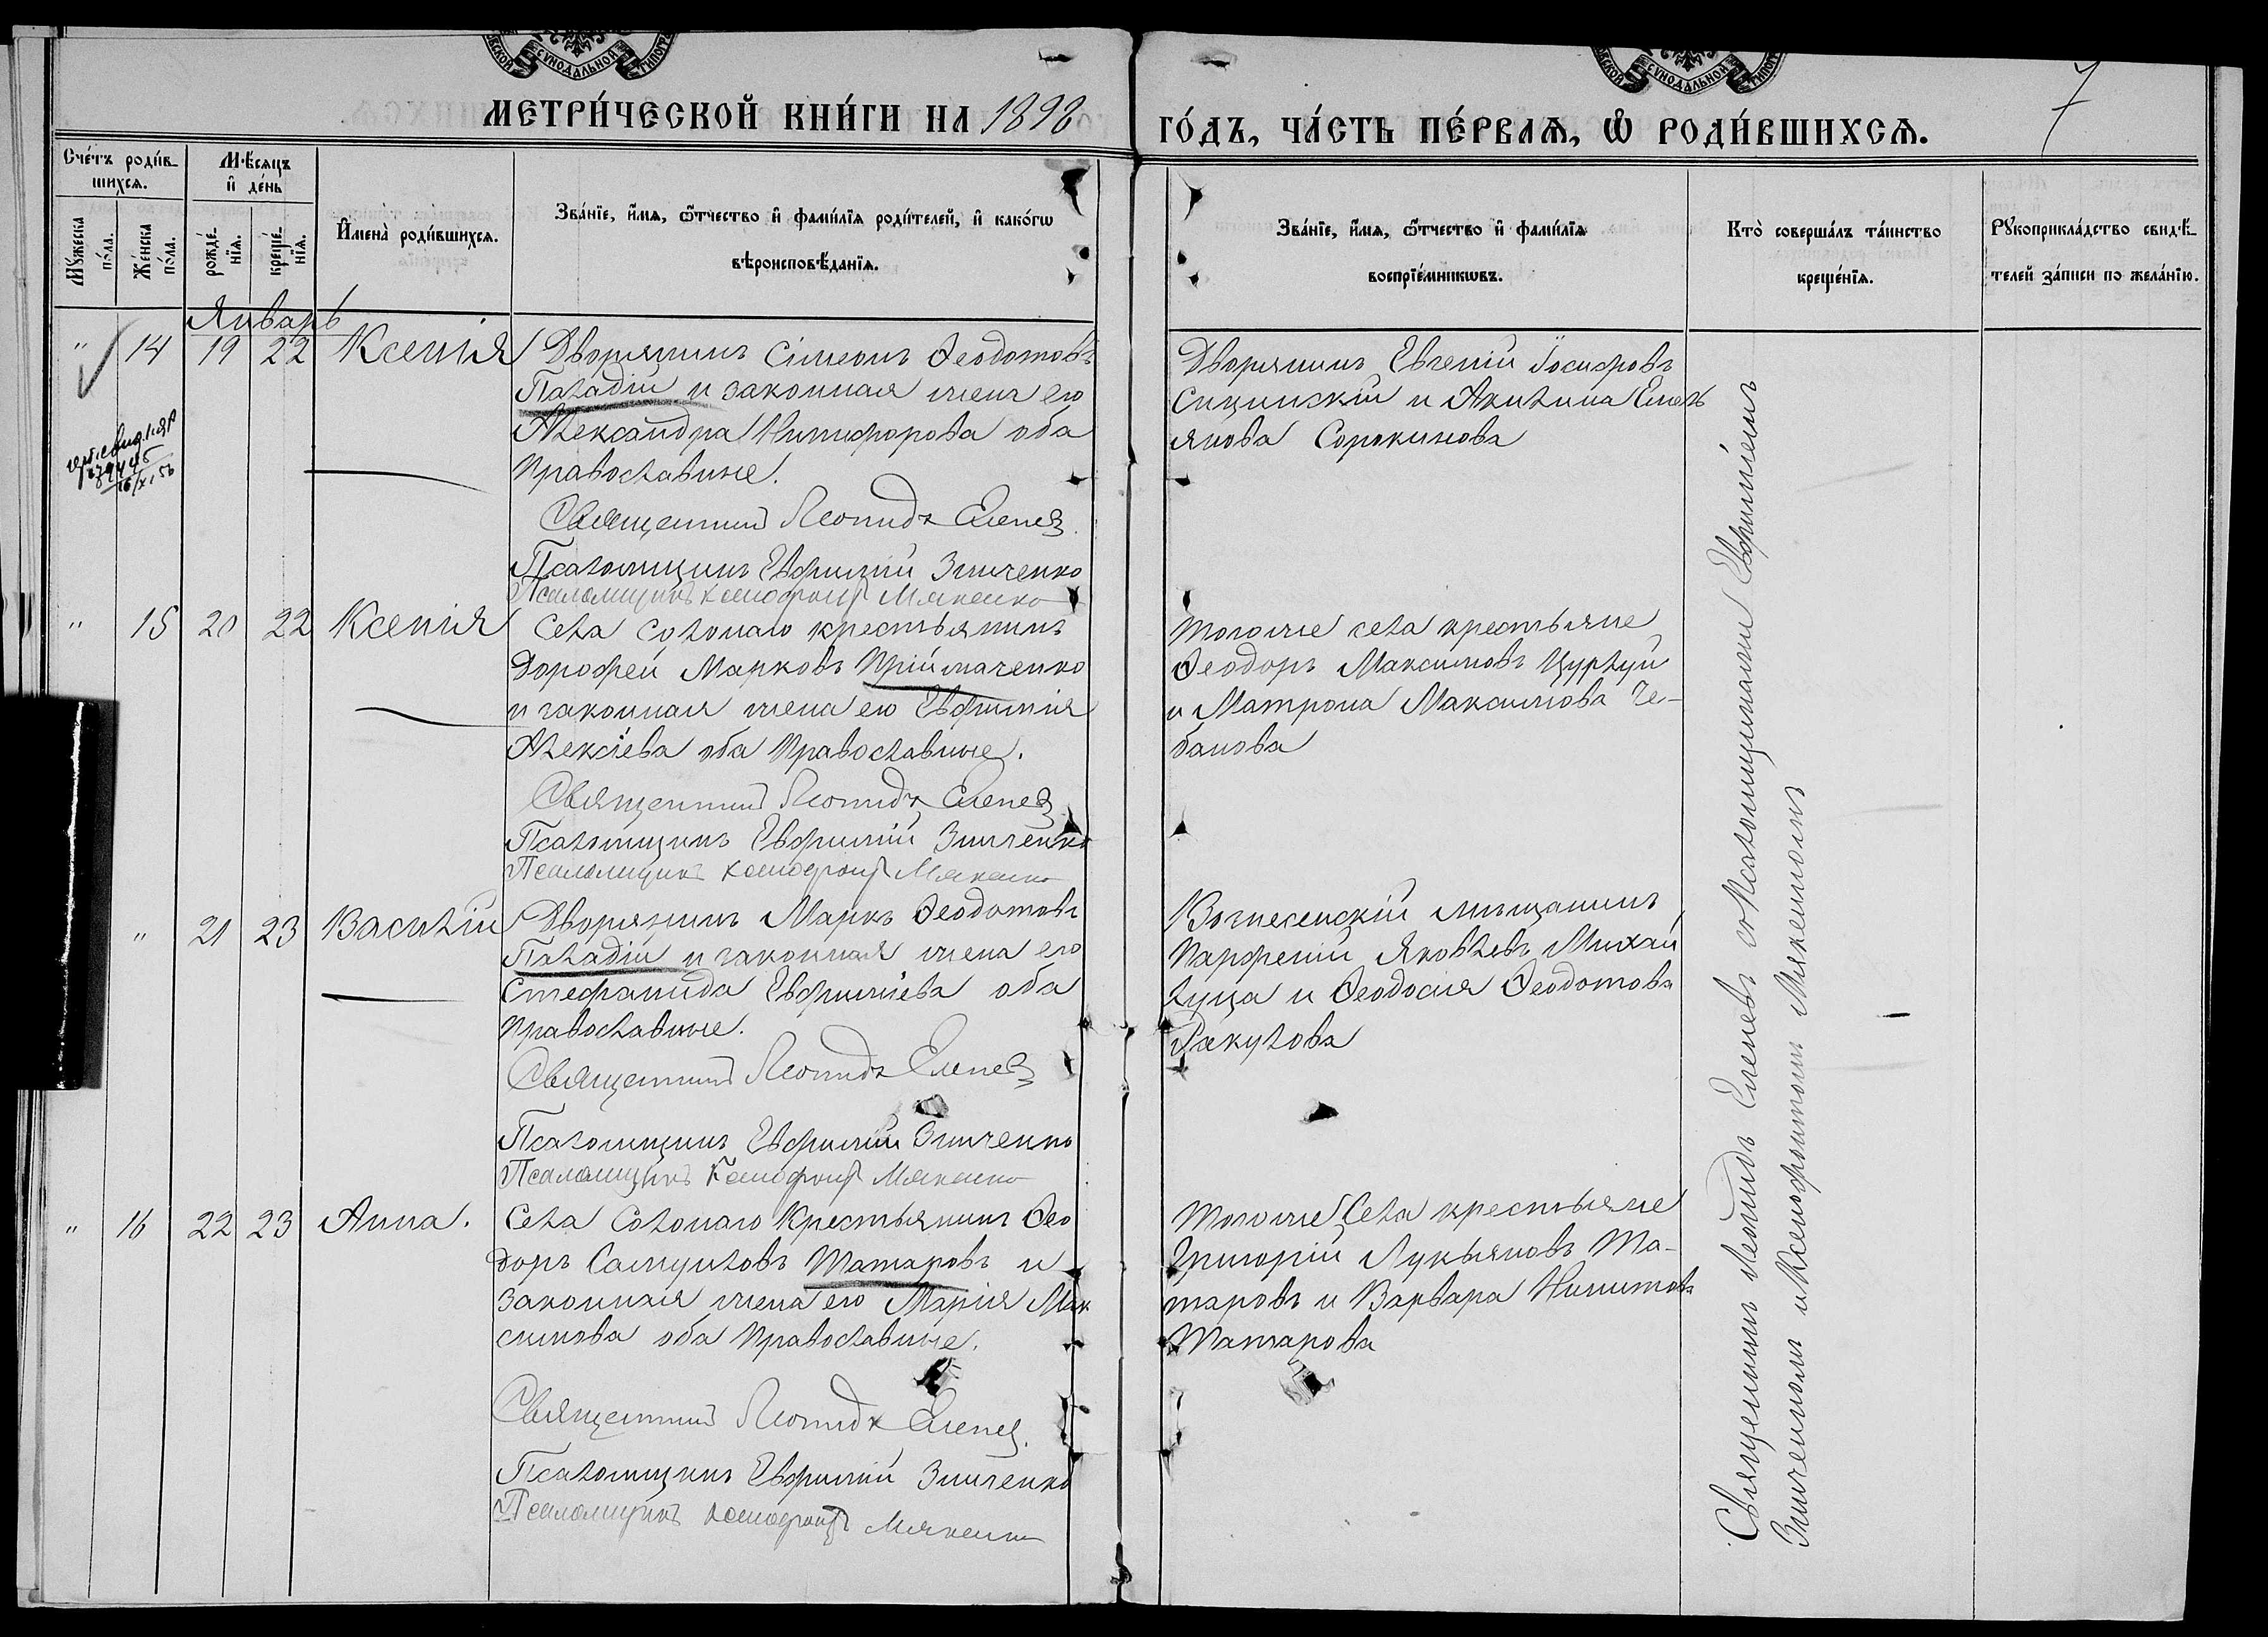 СѴНОДАЛЬНОЙ
СѴНОДАЛЬНОЙ
МЕТРИ́ЧЕСКОЙ КНИ́ГИ НА 1898
ГО́ДЪ, ЧА́СТЬ ПЕ́РВАѦ, Ѽ РОДИ́ВШИХСѦ.
7
Сче́тъ роди́в-
шихсѧ.
Му́жеска по́ла.
Же́нска по́ла.
Мѣ́сѧцъ
и҆ де́нь
рожде́-
нїѧ.
креще́-
нїѧ.
И҆мена̀ роди́вшихсѧ.
Зва́нїе, и҆́мѧ, ѻ҆́тчество и҆ фами́лїѧ роди́телей, и҆ како́гѡ
вѣроисповѣ́данїѧ.
Зва́нїе, и҆́мѧ, ѻ҆́тчество и҆ фами́лїѧ
воспрїе́мникѡвъ.
Кто̀ соверша́лъ та́инство
креще́нїѧ.
Рꙋкоприкла́дство свидѣ́-
телей за́писи по жела́нїю.
Январь
" 14 19 22 Ксенія
Дворянинъ Сімеонъ Ѳеодотовъ
Паладій и законная жена его
Александра Никифорова оба
Православные.
Священникъ Леонидъ Еленев
Псаломщикъ Евфимій Зинченко
Псаломщикъ Ксенофонтъ Мякенко
Дворянинъ Евгеній Іосифовъ
Сицинскій и Акилина Емель
янова Сорокинова
" 15 20 22 Ксенія
Села Солонаго крестьянинъ
Дорофей Марковъ Пріймаченко
и законная жена его Евфимія
Алексіева оба Православные.
Священникъ Леонидъ Еленев
Псаломщикъ Евфимій Зинченко
Псаломщикъ Ксенофонтъ Мякенко
Тогоже села крестьяне
Ѳеодоръ Максимовъ Цуркуй
и Матрона Максимова Че-
банова
" 21 23 Василій
Дворянинъ Маркъ Ѳеодотовъ
Паладій и законная жена его
Стефанида Евфиміева оба
Православные.
Священникъ Леонидъ Еленев
Псаломщикъ Евфимій Зинченко
Псаломщикъ Ксенофонтъ Мякенко
Вознесенскій мѣщанинъ
Парфеній Яковлевъ Михай
луца и Ѳеодосія Ѳеодотова
Ракулова
" 16 22 23 Анна.
Села Солонаго Крестьянинъ Ѳео
доръ Самуиловъ Татаровъ и
законная жена его Марія Мак
симова оба Православные.
Священникъ Леонидъ Еленев
Псаломщикъ Евфимій Зинченко
Псаломщикъ Ксенофонтъ Мякенко
Тогоже Села крестьяне
Григорій Лукьяновъ Та-
таровъ и Варвара Никитова
Татарова
Священникъ Леонидъ Еленевъ съ Псаломщиками Евфиміемъ
Зинченкомъ и Ксенофонтомъ Мякенкомъ